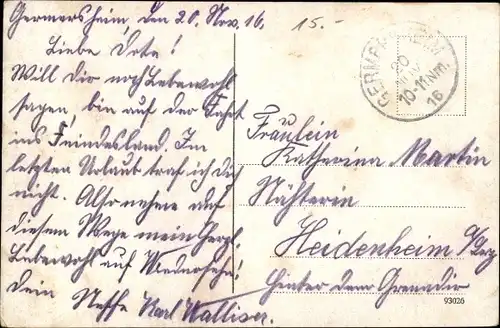 Germersheim, den 20. Nov. 16.
15.-
Liebe Dote!
Will dir noch Lebewohl
sagen, bin auf der Fahrt
ins Feindesland. Im
letzten Urlaub traf ich dich
nicht. Also nehme auf
diesem Wege mein herzl.
Lebewohl auf Wiedersehn!
Dein Neffe Karl Walliser.
GERMERSHEIM
20 NOV
10-11 Nm.
16
Fräulein
Katharina Martin
Nähterin
Heidenheim
hinter dem Grenadier
93026